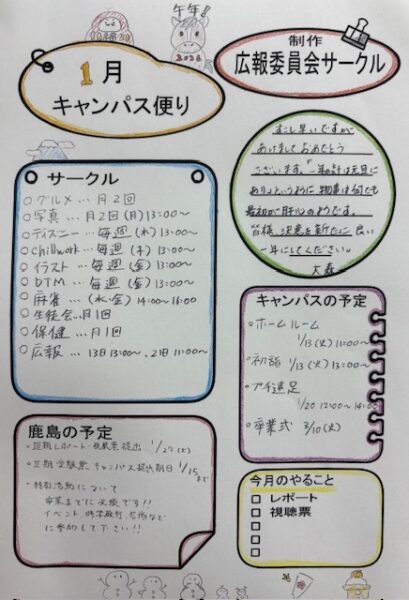 午年!!
2026
1月
キャンパス便り
制作
広報委員会サークル
すこし早いですが
あけましておめでとう
ございます。「一年の計は元旦に
あり」というように 物事は何でも
最初が肝心のようです。
皆様、決意を新たに 良い
一年にしてください。
サークル
○グルメ…月2回
○写真…月2回(月)13:00〜
○ディズニー…毎週(水)13:00〜
○chillwork…毎週(木)13:00〜
○イラスト…毎週(金)13:00〜
○DTM…毎週(金)13:00〜
○麻雀…(水・金)14:00〜16:00
○生徒会…月1回
○保健…月1回
○広報…13日13:00〜、21日11:00〜
キャンパスの予定
・ホームルーム
1/13(火)11:00〜
・初詣 1/13(火)13:00〜
・プチ遠足
1/20 12:00〜14:00
・卒業式 3/10(火)
鹿島の予定
・後期レポート・視聴票提出 1/27(火)
キャンパス提出期日 1/15まで
・特別活動について
卒業までに必須です!!
イベント、修学旅行、
に参加して下さい!!
今月のやること
□ レポート
□ 視聴票
□
□
□